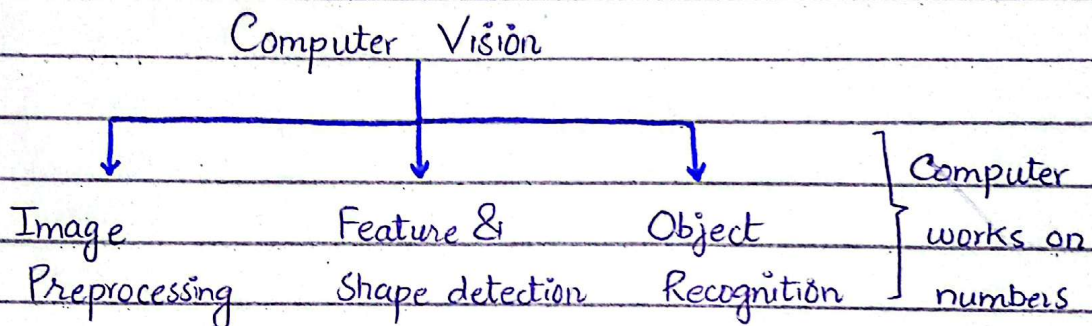 Computer Vision
Image
Preprocessing
Feature &
Shape detection
Object
Recognition
Computer
works on
numbers